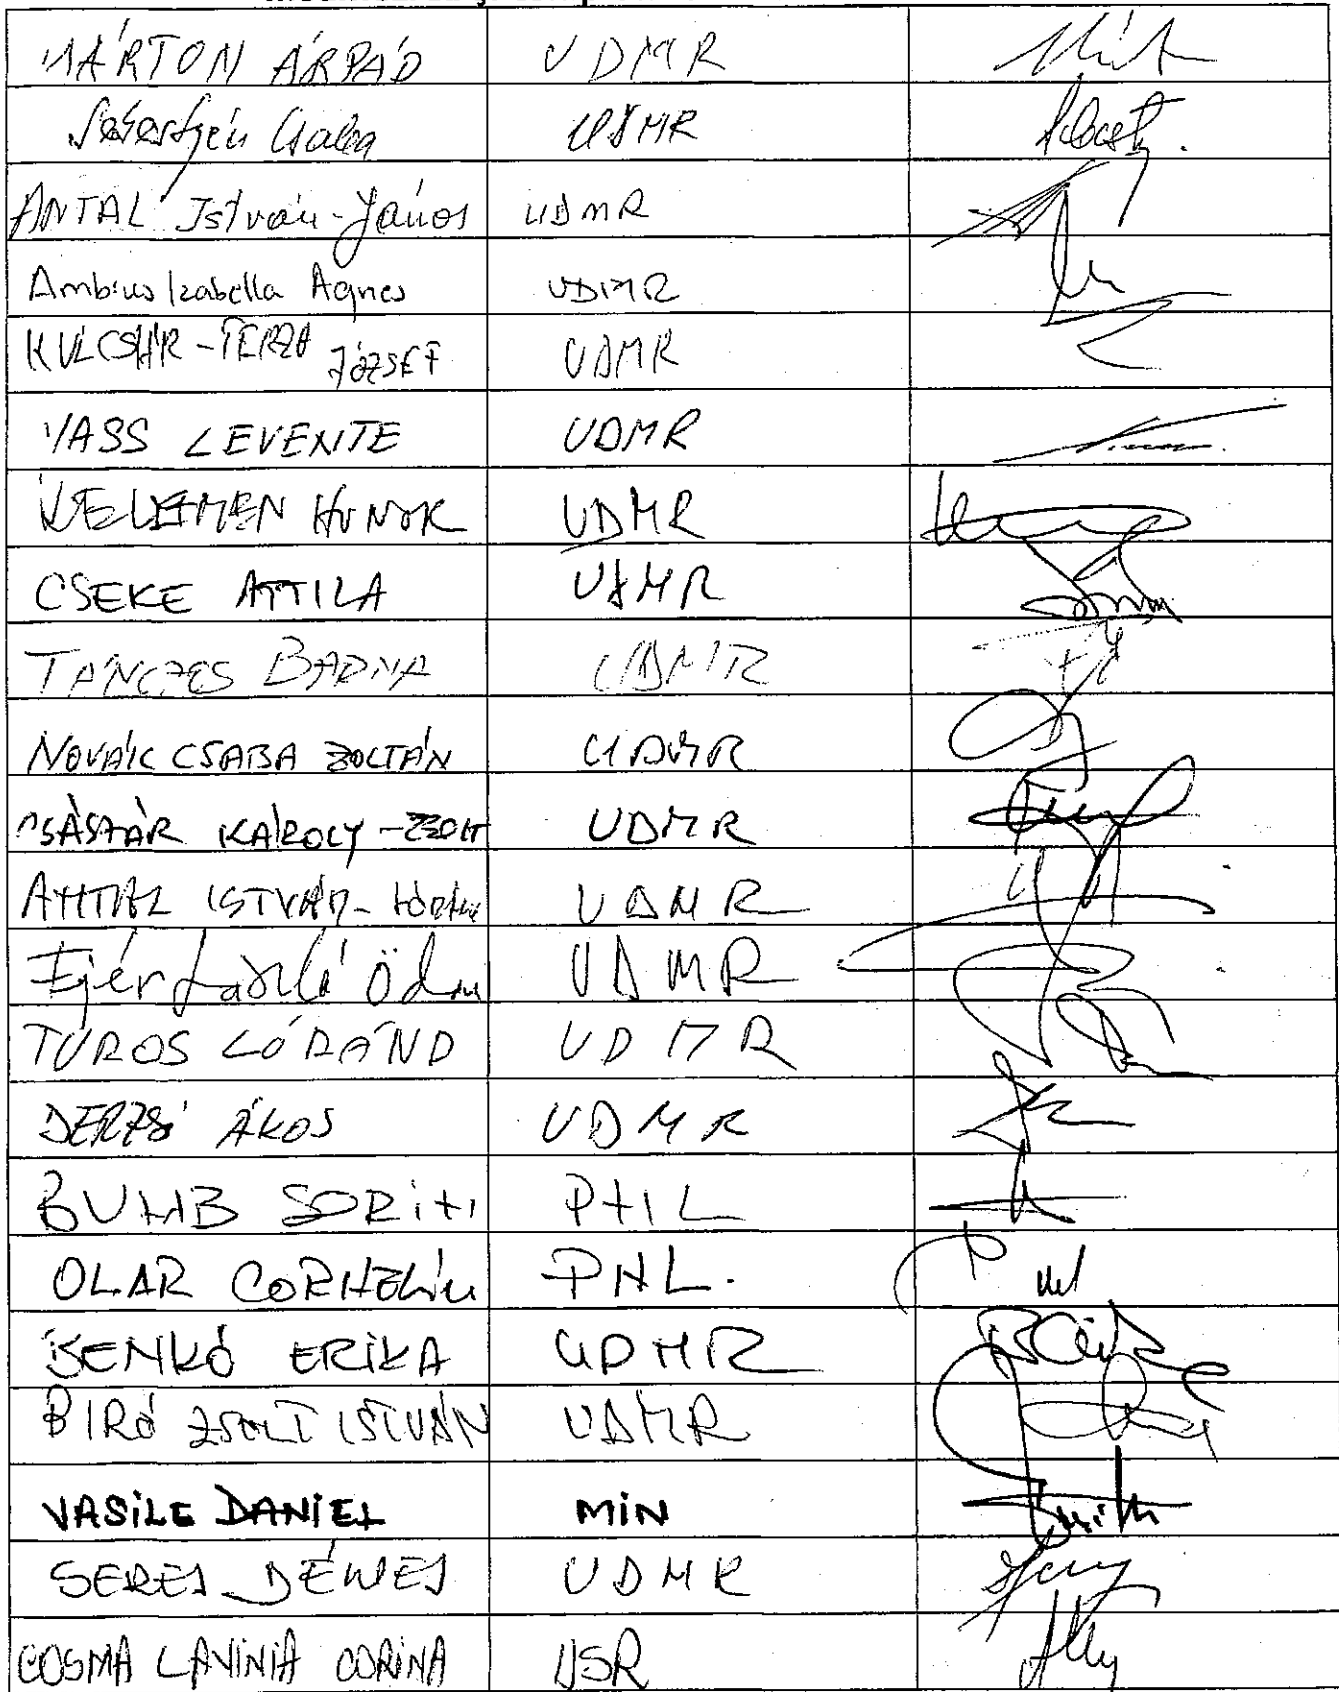 MÁRTON ÁRPÁD UDMR
Sebestyén Csaba UDMR
ANTAL István-János UDMR
Ambrus Izabella Agnes UDMR
KULCSÁR-TERZA JÓZSEF UDMR
VASS LEVENTE UDMR
KELEMEN HUNOR UDMR
CSEKE ATTILA UDMR
TANCZOS BARNA UDMR
NOVÁK CSABA ZOLTÁN UDMR
CSÁSZÁR KÁROLY-ZSOLT UDMR
ANTAL ISTVÁN- UDMR
Fejér László Ödön UDMR
TUROS LÓRÁND UDMR
DERZSI ÁKOS UDMR
BUMB SORIN PNL
OLAR CORNELIU PNL.
BENKŐ ERIKA UDMR
BIRÓ ZSOLT ISTVÁN UDMR
VASILE DANIEL MIN
SERES DÉNES UDMR
COSMA LAVINIA CORINA USR